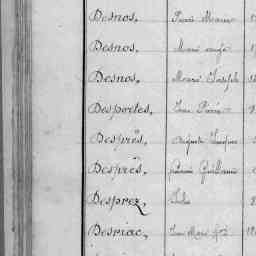 Desnos, Pierre Marie
Desnos, Marie
Desnos, Marie Joseph
Desportes, Jean Pierre
Després, Auguste
Després, Guillaume
Desprez, Jules
Desriac, Jean Marie